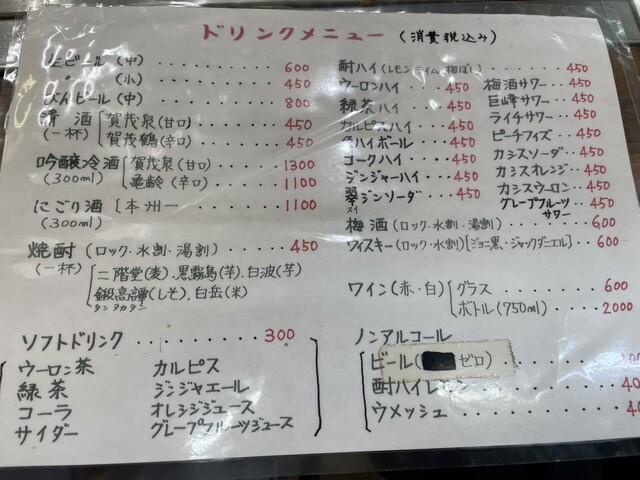 ドリンクメニュー (消費税込み)
生ビール (中) 600
〃 (小) 450
びんビール (中) 800
清酒 (一杯) 賀茂泉(甘口) 450
賀茂鶴(辛口) 450
吟醸冷酒 (300ml) 賀茂泉(甘口) 1300
亀齢(辛口) 1100
にごり酒 (300ml) 本州一 1100
焼酎 (ロック・水割・湯割) 450
(一杯) 二階堂(麦)・黒霧島(芋)・白波(芋)
鍛高譚(しそ)・白岳(米)
タンタカタン
ソフトドリンク 300
ウーロン茶 カルピス
緑茶 ジンジャエール
コーラ オレンジジュース
サイダー グレープフルーツジュース
酎ハイ (レモン・ライム・梅ぼし) 450
ウーロンハイ 450
緑茶ハイ 450
カルピスハイ 450
ハイボール 450
コークハイ 450
ジンジャーハイ 450
翠ジンソーダ 450
スイ
梅酒サワー 450
巨峰サワー 450
ライチサワー 450
ピーチフィズ 450
カシスソーダ 450
カシスオレンジ 450
カシスウーロン 450
グレープフルーツサワー 450
梅酒 (ロック・水割・湯割) 600
ウィスキー (ロック・水割)[ジョニ黒・ジャックダニエル] 600
ワイン (赤・白) グラス 600
ボトル (750ml) 2000
ノンアルコール
ビール ( ゼロ)
酎ハイレモン
ウメッシュ